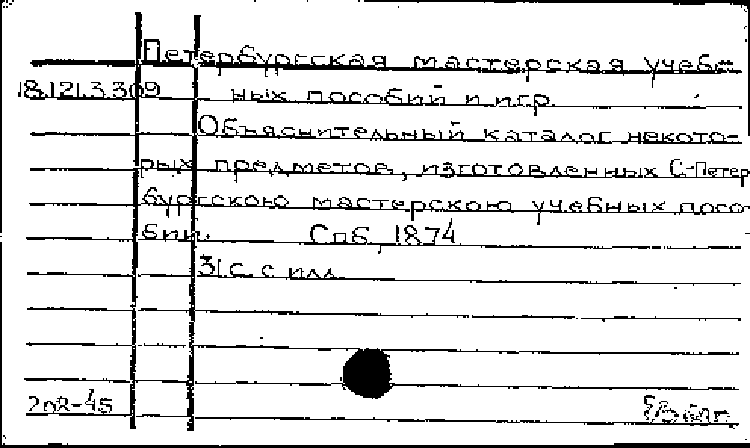 Петербургская мастерская учеб-
18.121.3.309 ных пособий и игр.
Объяснительный каталог некото-
рых предметов, изготовленных С-Петер
бургскою мастерскою учебных посо-
бий. Спб, 1874
31 с. с илл.